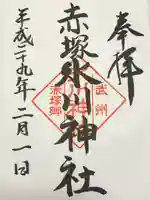 奉拝
赤塚氷川神社
武州
赤塚郷
平成二十九年二月一日